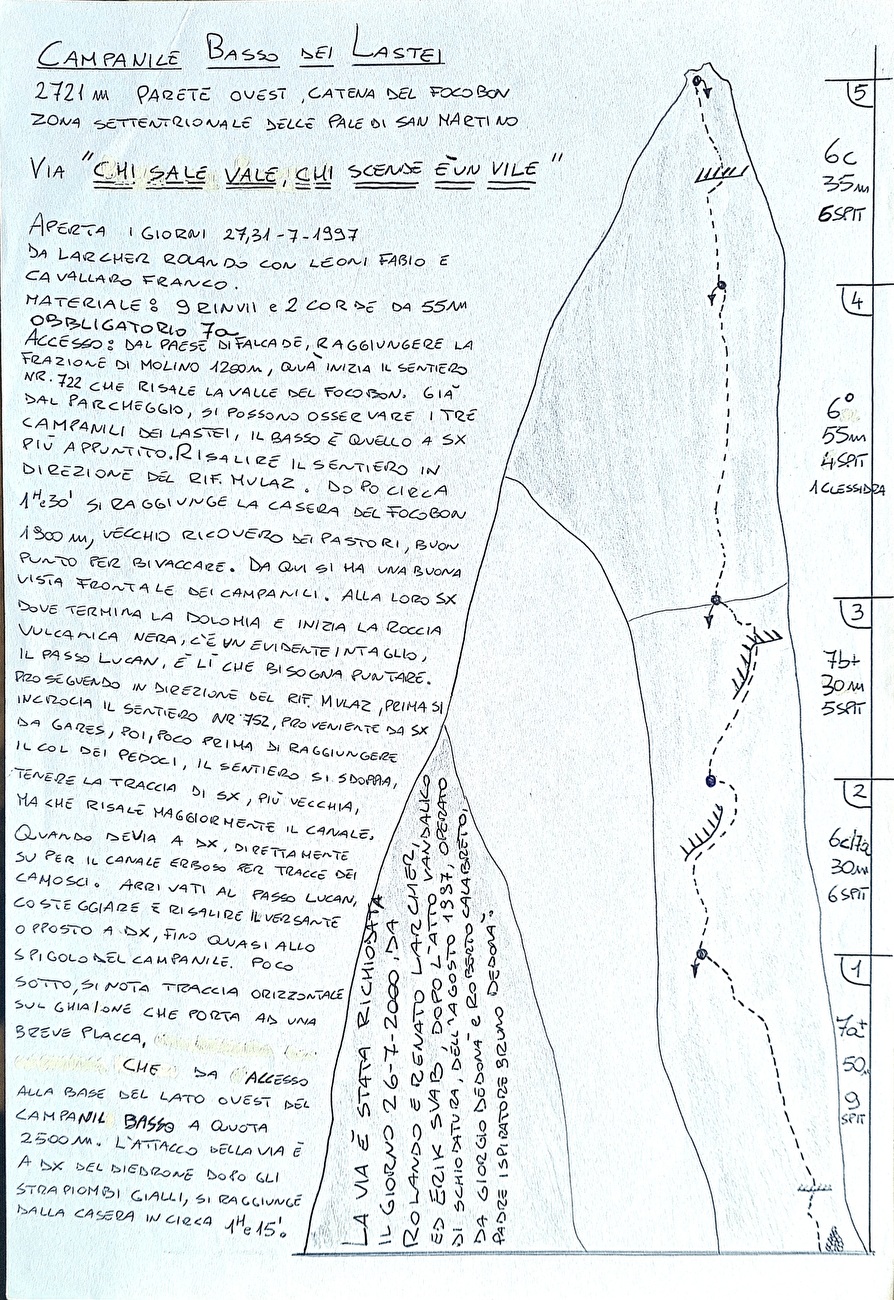 CAMPANILE BASSO DEI LASTEI
2721 m PARETE OVEST, CATENA DEL FOCOBON
ZONA SETTENTRIONALE DELLE PALE DI SAN MARTINO
VIA "CHI SALE VALE, CHI SCENDE È UN VILE"
APERTA I GIORNI 27,31-7-1997
DA LARCHER ROLANDO CON LEONI FABIO E
CAVALLARO FRANCO.
MATERIALE: 9 RINVII e 2 CORDE DA 55M
OBBLIGATORIO 7a
ACCESSO: DAL PAESE DI FALCADE, RAGGIUNGERE LA
FRAZIONE DI MOLINO 1200m, QUA' INIZIA IL SENTIERO
NR. 722 CHE RISALE LA VALLE DEL FOCOBON. GIA'
DAL PARCHEGGIO, SI POSSONO OSSERVARE I TRE
CAMPANILI DEI LASTEI, IL BASSO È QUELLO A SX
PIÙ APPUNTITO. RISALIRE IL SENTIERO IN
DIREZIONE DEL RIF. MULAZ. DOPO CIRCA
1H e 30' SI RAGGIUNGE LA CASERA DEL FOCOBON
1900 m, VECCHIO RICOVERO DEI PASTORI, BUON
PUNTO PER BIVACCARE. DA QUI SI HA UNA BUONA
VISTA FRONTALE DEI CAMPANILI. ALLA LORO SX
DOVE TERMINA LA DOLOMIA E INIZIA LA ROCCIA
VULCANICA NERA, C'È UN EVIDENTE INTAGLIO,
IL PASSO LUCAN, È LÌ CHE BISOGNA PUNTARE.
PROSEGUENDO IN DIREZIONE DEL RIF. MULAZ, PRIMA SI
INCROCIA IL SENTIERO NR 752, PROVENIENTE DA SX
DA GARES, POI, POCO PRIMA DI RAGGIUNGERE
IL COL DEI PEDOCI, IL SENTIERO SI SDOPPIA,
TENERE LA TRACCIA DI SX, PIÙ VECCHIA,
MA CHE RISALE MAGGIORMENTE IL CANALE.
QUANDO DEVIA A DX, DIRETTAMENTE
SU PER IL CANALE ERBOSO PER TRACCE DEI
CAMOSCI. ARRIVATI AL PASSO LUCAN,
COSTEGGIARE E RISALIRE IL VERSANTE
OPPOSTO A DX, FINO QUASI ALLO
SPIGOLO DEL CAMPANILE. POCO
SOTTO, SI NOTA TRACCIA ORIZZONTALE
SUL GHIAIONE CHE PORTA AD UNA
BREVE PLACCA,
CHE DA ACCESSO
ALLA BASE DEL LATO OVEST DEL
CAMPANIL BASSO A QUOTA
2500 m. L'ATTACCO DELLA VIA È
A DX DEL DIEDRONE DOPO GLI
STRAPIOMBI GIALLI, SI RAGGIUNGE
DALLA CASERA IN CIRCA 1H e 15'.
LA VIA È STATA RICHIODATA
IL GIORNO 26-7-2000, DA
ROLANDO E RENATO LARCHER,
ED ERIK SVAB, DOPO L'ATTO VANDALICO
DI SCHIODATURA, DELL'AGOSTO 1997, OPERATO
DA GIORGIO DEDONA' e ROBERTO CALABRETO,
PADRE ISPIRATORE BRUNO DEDONA'.
5
6c
35m
6 SPIT
4
6°
55m
4 SPIT
1 CLESSIDRA
3
7b+
30m
5 SPIT
2
6c/7a
30m
6 SPIT
1
7a+
50m
9
SPIT